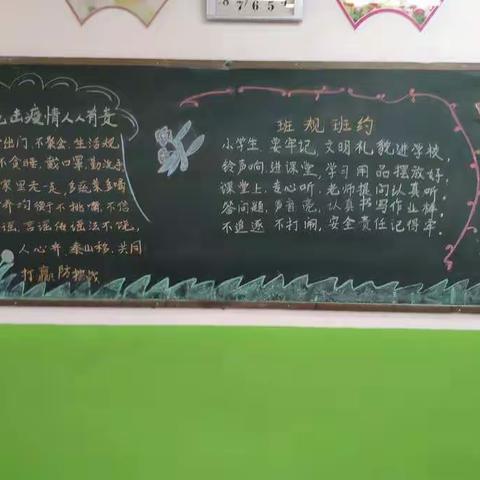 8 7 6 5 9
击疫情人人有责
出门,不聚会,生活规
不贪睡,戴口罩,勤洗手
家里老是,多蔬菜多喝
均衡不挑嘴,不信
谣,言谣传谣法不饶,
人心齐,泰山移,共同
打赢防控战
班规班约
小学生,要牢记,文明礼貌进学校,
铃声响,进课堂,学习用品摆放好,
课堂上,专心听,老师提问认真听,
答问题,声音亮,认真书写作业棒,
不追逐,不打闹,安全责任记得牢。